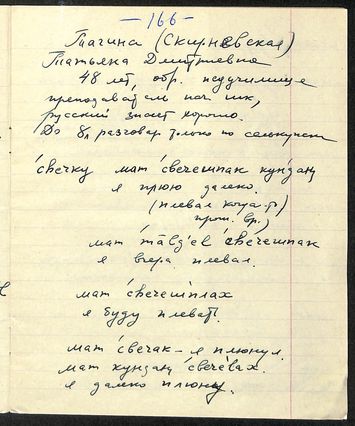 — 166 —
Тагина (Скирневская)
Татьяна Дмитриевна
48 лет, обр. педучилище
преподаватель нач. шк,
русский знает хорошо.
До 8л разговар только по селькупски
свечку мат свечешпак кундаӄ
я плюю далеко.
(плевал когда-то)
прош. вр.)
мат свечешпак
я вчера плевал.
мат свечешплах
я буду плевать
мат свечак – я плюнул.
мат кундаӄ свечевах.
я далеко плюну.